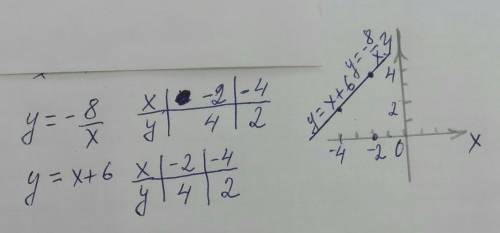 y = -8/x
x | -2 | -4
y | 4 | 2
y = x+6
x | -2 | -4
y | 4 | 2
y = x+6
y = -8/x
y
4
2
-4 -2 0
x